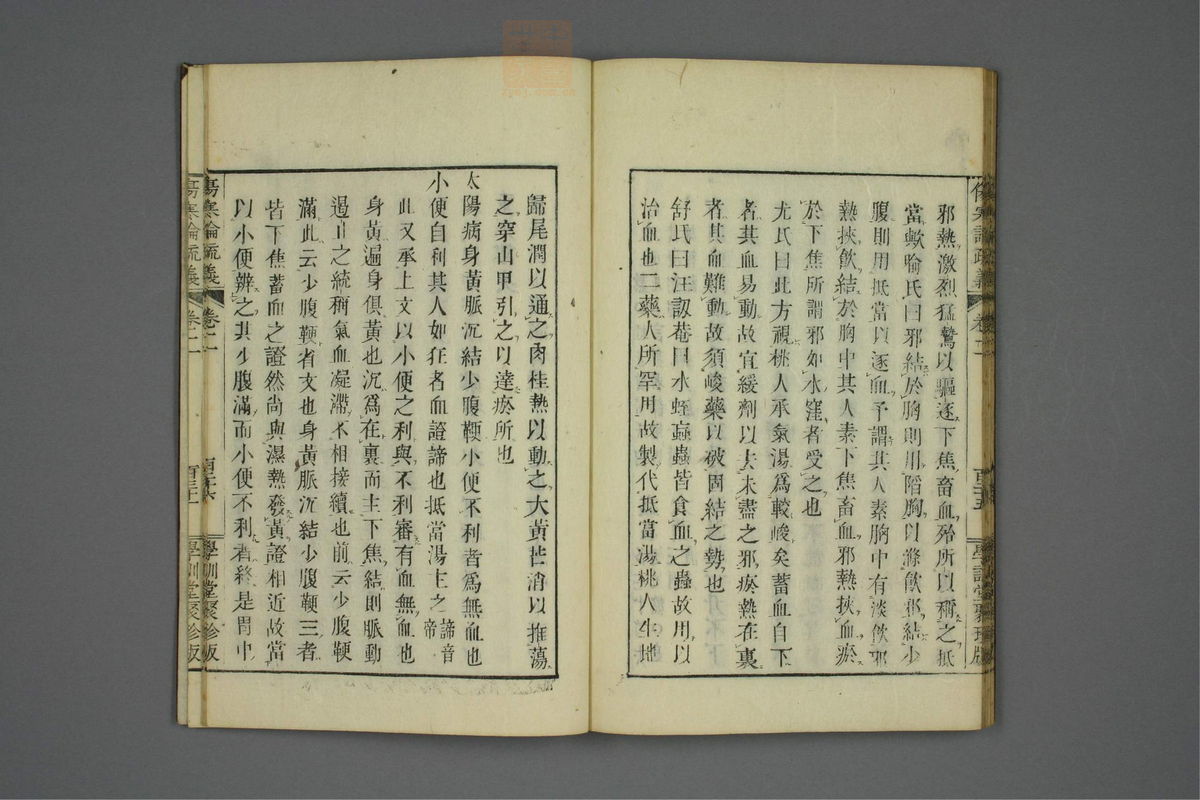 邪熱激烈猛鷙以驅逐下焦畜血殆所以稱之抵
當歟喻氏曰邪結於胸則用陷胸以滌飲邪結少
腹則用抵當以逐血予謂其人素胸中有淡飲邪
熱挾飲結於胸中其人素下焦畜血邪熱挾血瘀
於下焦所謂邪如水窪者受之也
尤氏曰此方視桃人承氣湯爲較峻矣蓄血自下
者其血易動故宜緩劑以去未盡之邪瘀熱在裏
者其血難動故須峻藥以破固結之勢也
舒氏曰汪訒菴曰水蛭䖟蟲皆食血之蟲故用以
治血也二藥人所罕用故製代抵當湯桃人生地
歸尾潤以通之肉桂熱以動之大黃芒消以推蕩
之穿山甲引之以達瘀所也
太陽病身黃脈沉結少腹鞕小便不利者爲無血也
小便自利其人如狂者血證諦也抵當湯主之諦音帝
此又承上文以小便之利與不利審有血無血也
身黃遍身俱黃也沉爲在裏而主下焦結則脈動
遏止之統稱氣血凝滯不相接續也前云少腹鞕
滿此云少腹鞕省文也身黃脈沉結少腹鞕三者
皆下焦蓄血之證然尚與濕熱發黃證相近故當
以小便辨之其少腹滿而小便不利者終是胃中
傷寒論疏義
卷二
百三十六
學訓堂聚珍版